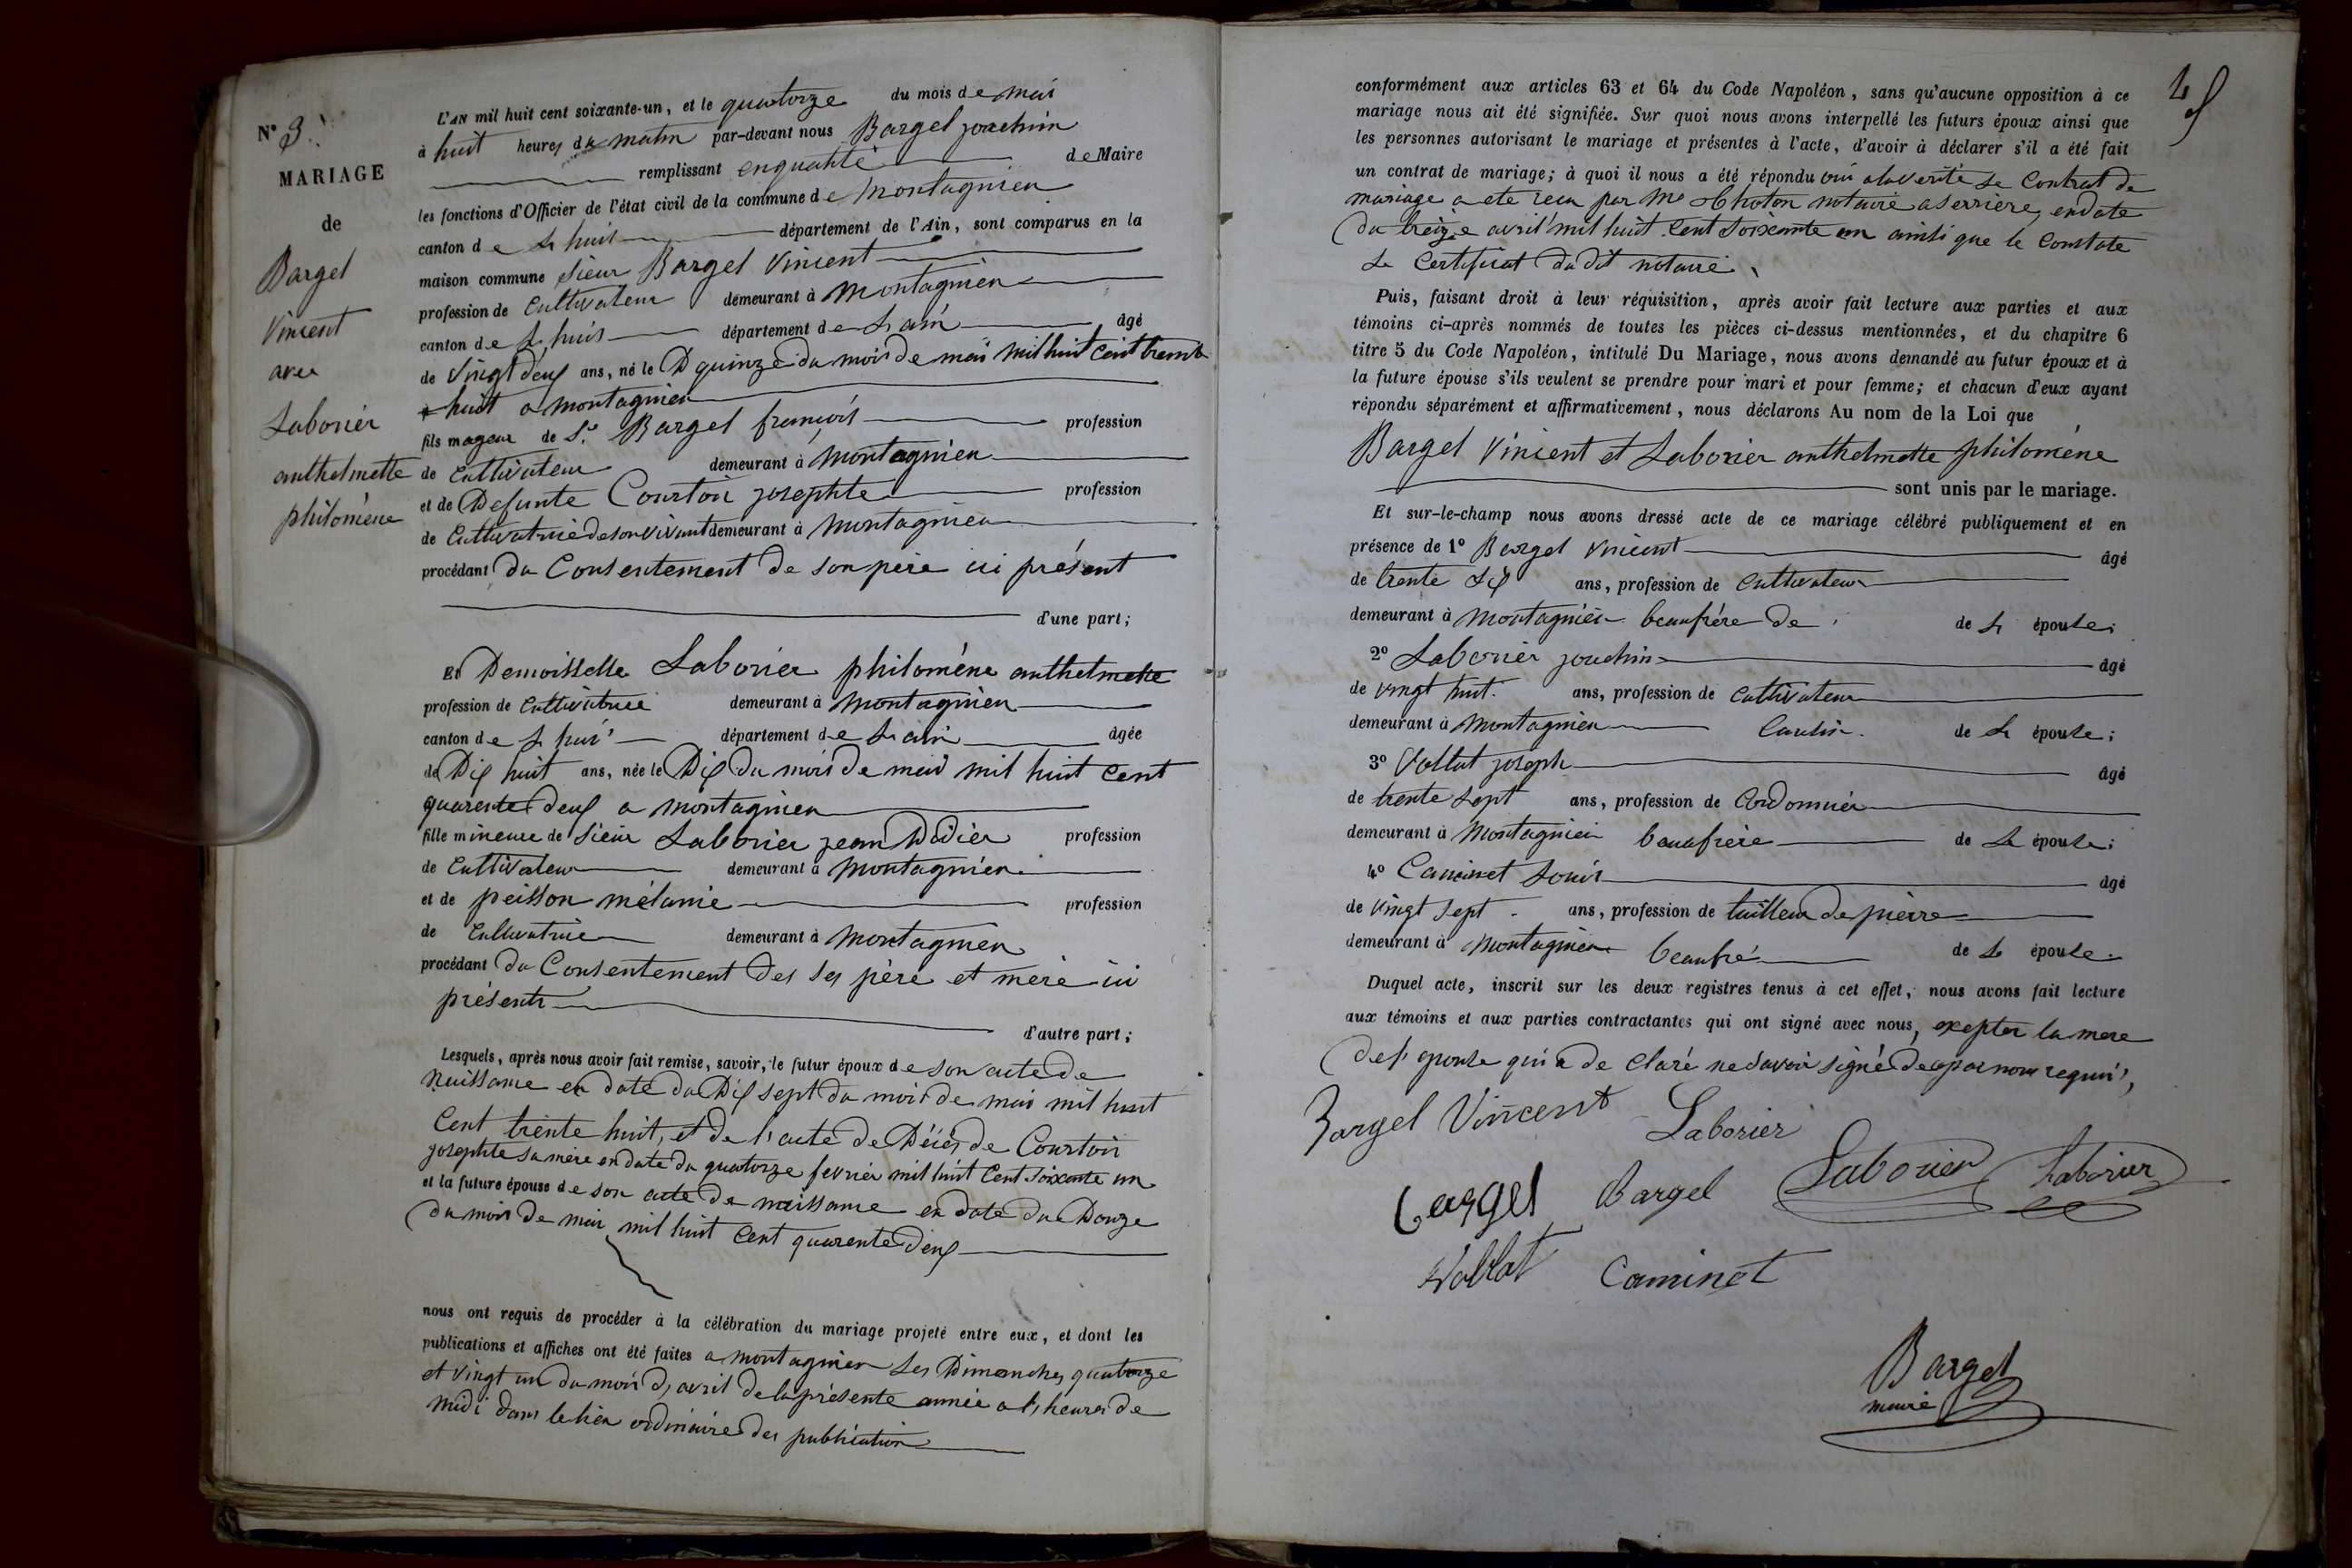 N° 3.
MARIAGE
de
Bargel
Vincent
avec
Laborier
anthelmette
philomène
L'AN mil huit cent soixante-un, et le quatorze du mois de mai
à huit heures du matin par-devant nous Bargel joachim
remplissant enqualité de Maire
les fonctions d'Officier de l'état civil de la commune de Montagnieu
canton de Lhuis département de l'Ain, sont comparus en la
maison commune sieur Bargel Vincent
profession de Cultivateur demeurant à Montagnieu
canton de Lhuis département de Lain âgé
de Vingt deux ans, né le quinze du mois de mai mil huit cent trente
huit a montagnieu
fils mageur de Sr Bargel francois profession
de Cultivateur demeurant à Montagnieu
et de Defunte Courtois josephte profession
de Cultivatrice desonvivant demeurant à Montagnieu
procédant du Consentement de son père ici présent
d'une part;
Et Demoisselle Laborier philomène anthelmette
profession de Cultivatrice demeurant à Montagnieu
canton de Lhuis département de Lain âgée
de Dix huit ans, née le Dix du mois de mai mil huit cent
quarente deux a montagnieu
fille mineure de sieur Laborier jean Didier profession
de Cultivateur demeurant à Montagnieu
et de peisson mélanie profession
de Cultivatrice demeurant à Montagnieu
procédant du Consentement des ses père et mère ici
présents
d'autre part;
Lesquels, après nous avoir fait remise, savoir, le futur époux de son acte de
Naissance en date du Dix sept du mois de mai mil huit
Cent trente huit, et de l'acte de Décès de Courtois
josephte sa mère en date du quatorze fevrier mil huit Cent soixante un
et la future épouse de son acte de naissance en date du Douze
du mois de mai mil huit Cent quarente deux
nous ont requis de procéder à la célébration du mariage projeté entre eux, et dont les
publications et affiches ont été faites a montagnieu Les Dimanches quatorze
et Vingt un du mois d'avril de la présente année a l'heure de
Midi dans le lieu ordinaire des publication
conformément aux articles 63 et 64 du Code Napoléon, sans qu'aucune opposition à ce
mariage nous ait été signifiée. Sur quoi nous avons interpellé les futurs époux ainsi que
les personnes autorisant le mariage et présentes à l'acte, d'avoir à déclarer s'il a été fait
un contrat de mariage; à quoi il nous a été répondu oui alaverité Le Contrat de
mariage a ete recu par Me notaire a serriere, endate
du treize avril mil huit Cent soixante un ainsi que le Constate
Le Certificat dudit notaire.
Puis, faisant droit à leur réquisition, après avoir fait lecture aux parties et aux
témoins ci-après nommés de toutes les pièces ci-dessus mentionnées, et du chapitre 6
titre 5 du Code Napoléon, intitulé Du Mariage, nous avons demandé au futur époux et à
la future épouse s'ils veulent se prendre pour mari et pour femme; et chacun d'eux ayant
répondu séparément et affirmativement, nous déclarons Au nom de la Loi que
Bargel Vincent et Laborier anthelmette philomène
sont unis par le mariage.
Et sur-le-champ nous avons dressé acte de ce mariage célébré publiquement et en
présence de 1° Bargel Vincent âgé
de trente six ans, profession de Cultivateur
demeurant à Montagnieu beaufrére de de L épouse;
2° Laborier joachin âgé
de vingt huit ans, profession de Cultivateur
demeurant à Montagnieu Cousin de L épouse;
3° Vallat joseph âgé
de trente sept ans, profession de Cordonnier
demeurant à Montagnieu beaufrère de L épouse;
4° Caminet Louis âgé
de Vingt sept ans, profession de tailleur de pierre
demeurant à Montagnieu beaufré de L épouse.
Duquel acte, inscrit sur les deux registres tenus à cet effet, nous avons fait lecture
aux témoins et aux parties contractantes qui ont signé avec nous, exepter la mere
del'epouse qui a de claré nesavoir signé de ce par nous requis,
Bargel Vincent Laborier
Bargel Bargel Laborier Laborier
Vallat Caminet
Bargel
maire